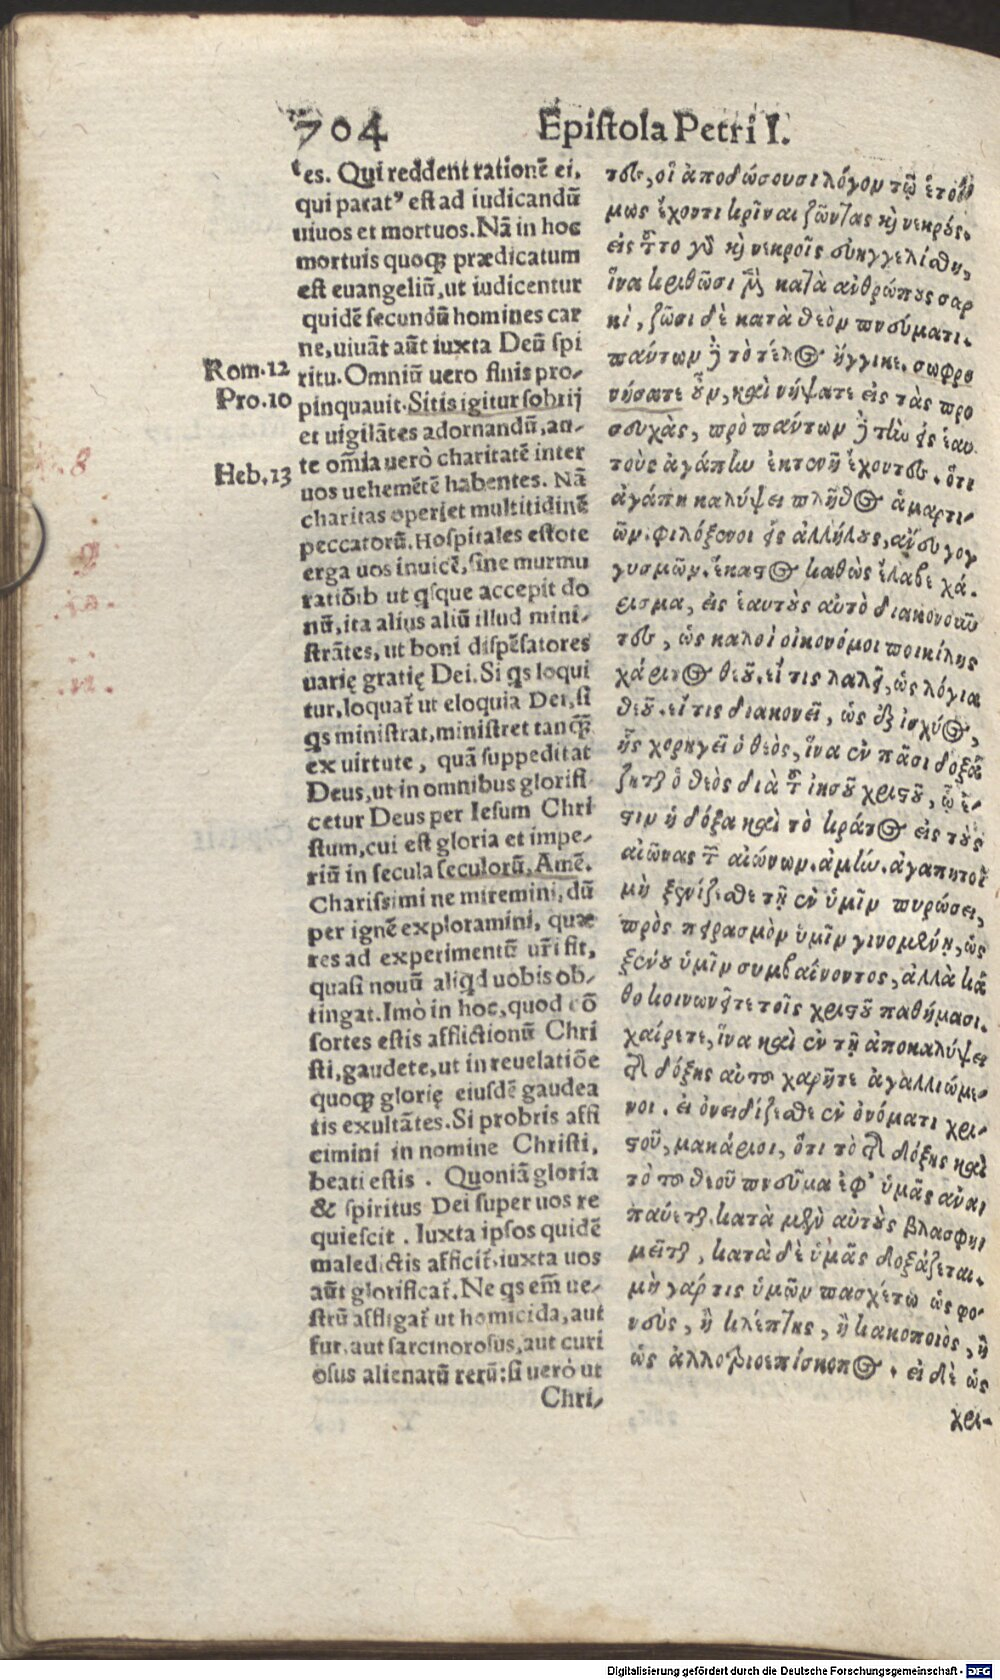 704 Epistola Petri I.
es. Qui reddent rationẽ ei,
qui parat⁹ est ad iudicandũ
uiuos et mortuos. Nã in hoc
mortuis quoqꝫ prædicatum
est euangeliũ, ut iudicentur
quidẽ secundũ homines car
ne, uiuãt aũt iuxta Deũ spi
ritu. Omniũ uero finis pro-
pinquauit. Sitis igitur sobrij
et uigilãtes ad orandũ, an-
te oĩa uerò charitatẽ inter
uos uehemẽtẽ habentes. Nã
charitas operiet multitidinẽ
peccatorũ. Hospitales estote
erga uos inuicẽ, sine murmu
ratiõib ut qsque accepit do
nũ, ita alius aliũ illud mini-
strãtes, ut boni dispẽsatores
uarię gratię Dei. Si qs loqui
tur, loquat᷑ ut eloquia Dei, si
qs ministrat, ministret tanqꝫ̃
ex uirtute, quã suppeditat
Deus, ut in omnibus glorifi
cetur Deus per Iesum Chri
stum, cui est gloria et impe-
riũ in secula seculorũ, Amẽ.
Charissimi ne miremini, dũ
per ignẽ exploramini, quæ
res ad experimentũ ur̃i fit,
quasi nouũ aliqd uobis ob-
tingat. Imò in hoc, quod cõ
sortes estis afflictionũ Chri
sti, gaudete, ut in reuelatiõe
quoqꝫ glorię eiusdẽ gaudea
tis exultãtes. Si probris affi
cimini in nomine Christi,
beati estis. Quoniã gloria
& spiritus Dei super uos re
quiescit. Iuxta ipsos quidẽ
maledictis afficit᷑, iuxta uos
aũt glorificat᷑. Ne qs em̃ ue-
strũ affligat᷑ ut homicida, aut
fur, aut sarcinorosus, aut curi
osus alienarũ rerũ: si uerò ut
Chri-
Rom. 12
Pro. 10
Heb. 13
τες, οἳ ἀποδώσουσι λόγον τῷ ἑτοί
μως ἔχοντι κρῖναι ζῶντας καὶ νεκρούς.
εἰς τοῦτο γὰρ καὶ νεκροῖς εὐηγγελίσθη,
ἵνα κριθῶσι μὲν κατὰ ἀνθρώπους σαρ
κὶ, ζῶσι δὲ κατὰ θεὸν πνεύματι.
πάντων δὲ τὸ τέλος ἤγγικε. σωφρο
νήσατε οὖν, καὶ νήψατε εἰς τὰς προ
σευχὰς, πρὸ πάντων δὲ τὴν εἰς ἑαυ
τοὺς ἀγάπην ἐκτενῆ ἔχοντες. ὅτι
ἀγάπη καλύψει πλῆθος ἁμαρτι-
ῶν. φιλόξενοι εἰς ἀλλήλους, ἄνευ γογ
γυσμῶν. ἕκαστος καθὼς ἔλαβε χά-
ρισμα, εἰς ἑαυτοὺς αὐτὸ διακονοῦν
τες, ὡς καλοὶ οἰκονόμοι ποικίλης
χάριτος θεοῦ. εἴ τις λαλεῖ, ὡς λόγια
θεοῦ. εἴ τις διακονεῖ, ὡς ἐξ ἰσχύος,
ἧς χορηγεῖ ὁ θεὸς, ἵνα ἐν πᾶσι δοξά
ζηται ὁ θεὸς διὰ τοῦ ἰησοῦ χριστοῦ, ᾧ ἐ-
στιν ἡ δόξα καὶ τὸ κράτος εἰς τοὺς
αἰῶνας τῶν αἰώνων. ἀμήν. ἀγαπητοὶ
μὴ ξενίζεσθε τῇ ἐν ὑμῖν πυρώσει,
πρὸς πειρασμὸν ὑμῖν γινομένῃ, ὡς
ξένου ὑμῖν συμβαίνοντος, ἀλλὰ κα
θο κοινωνεῖτε τοῖς χριστοῦ παθήμασι.
χαίρετε, ἵνα καὶ ἐν τῇ ἀποκαλύψει
τῆς δόξης αὐτοῦ χαρῆτε ἀγαλλιώμε-
νοι. εἰ ὀνειδίζεσθε ἐν ὀνόματι χρι-
στοῦ, μακάριοι, ὅτι τὸ τῆς δόξης καὶ
τὸ τοῦ θεοῦ πνεῦμα ἐφ' ὑμᾶς ἀναι
παύεται. κατὰ μὲν αὐτοὺς βλασφη
μεῖται, κατὰ δὲ ὑμᾶς δοξάζεται.
μὴ γάρ τις ὑμῶν πασχέτω ὡς φο-
νεὺς, ἢ κλέπτης, ἢ κακοποιὸς, ἢ
ὡς ἀλλοτριοεπίσκοπος. εἰ δὲ ὡς
χρι-
Digitalisierung gefördert durch die Deutsche Forschungsgemeinschaft - DFG